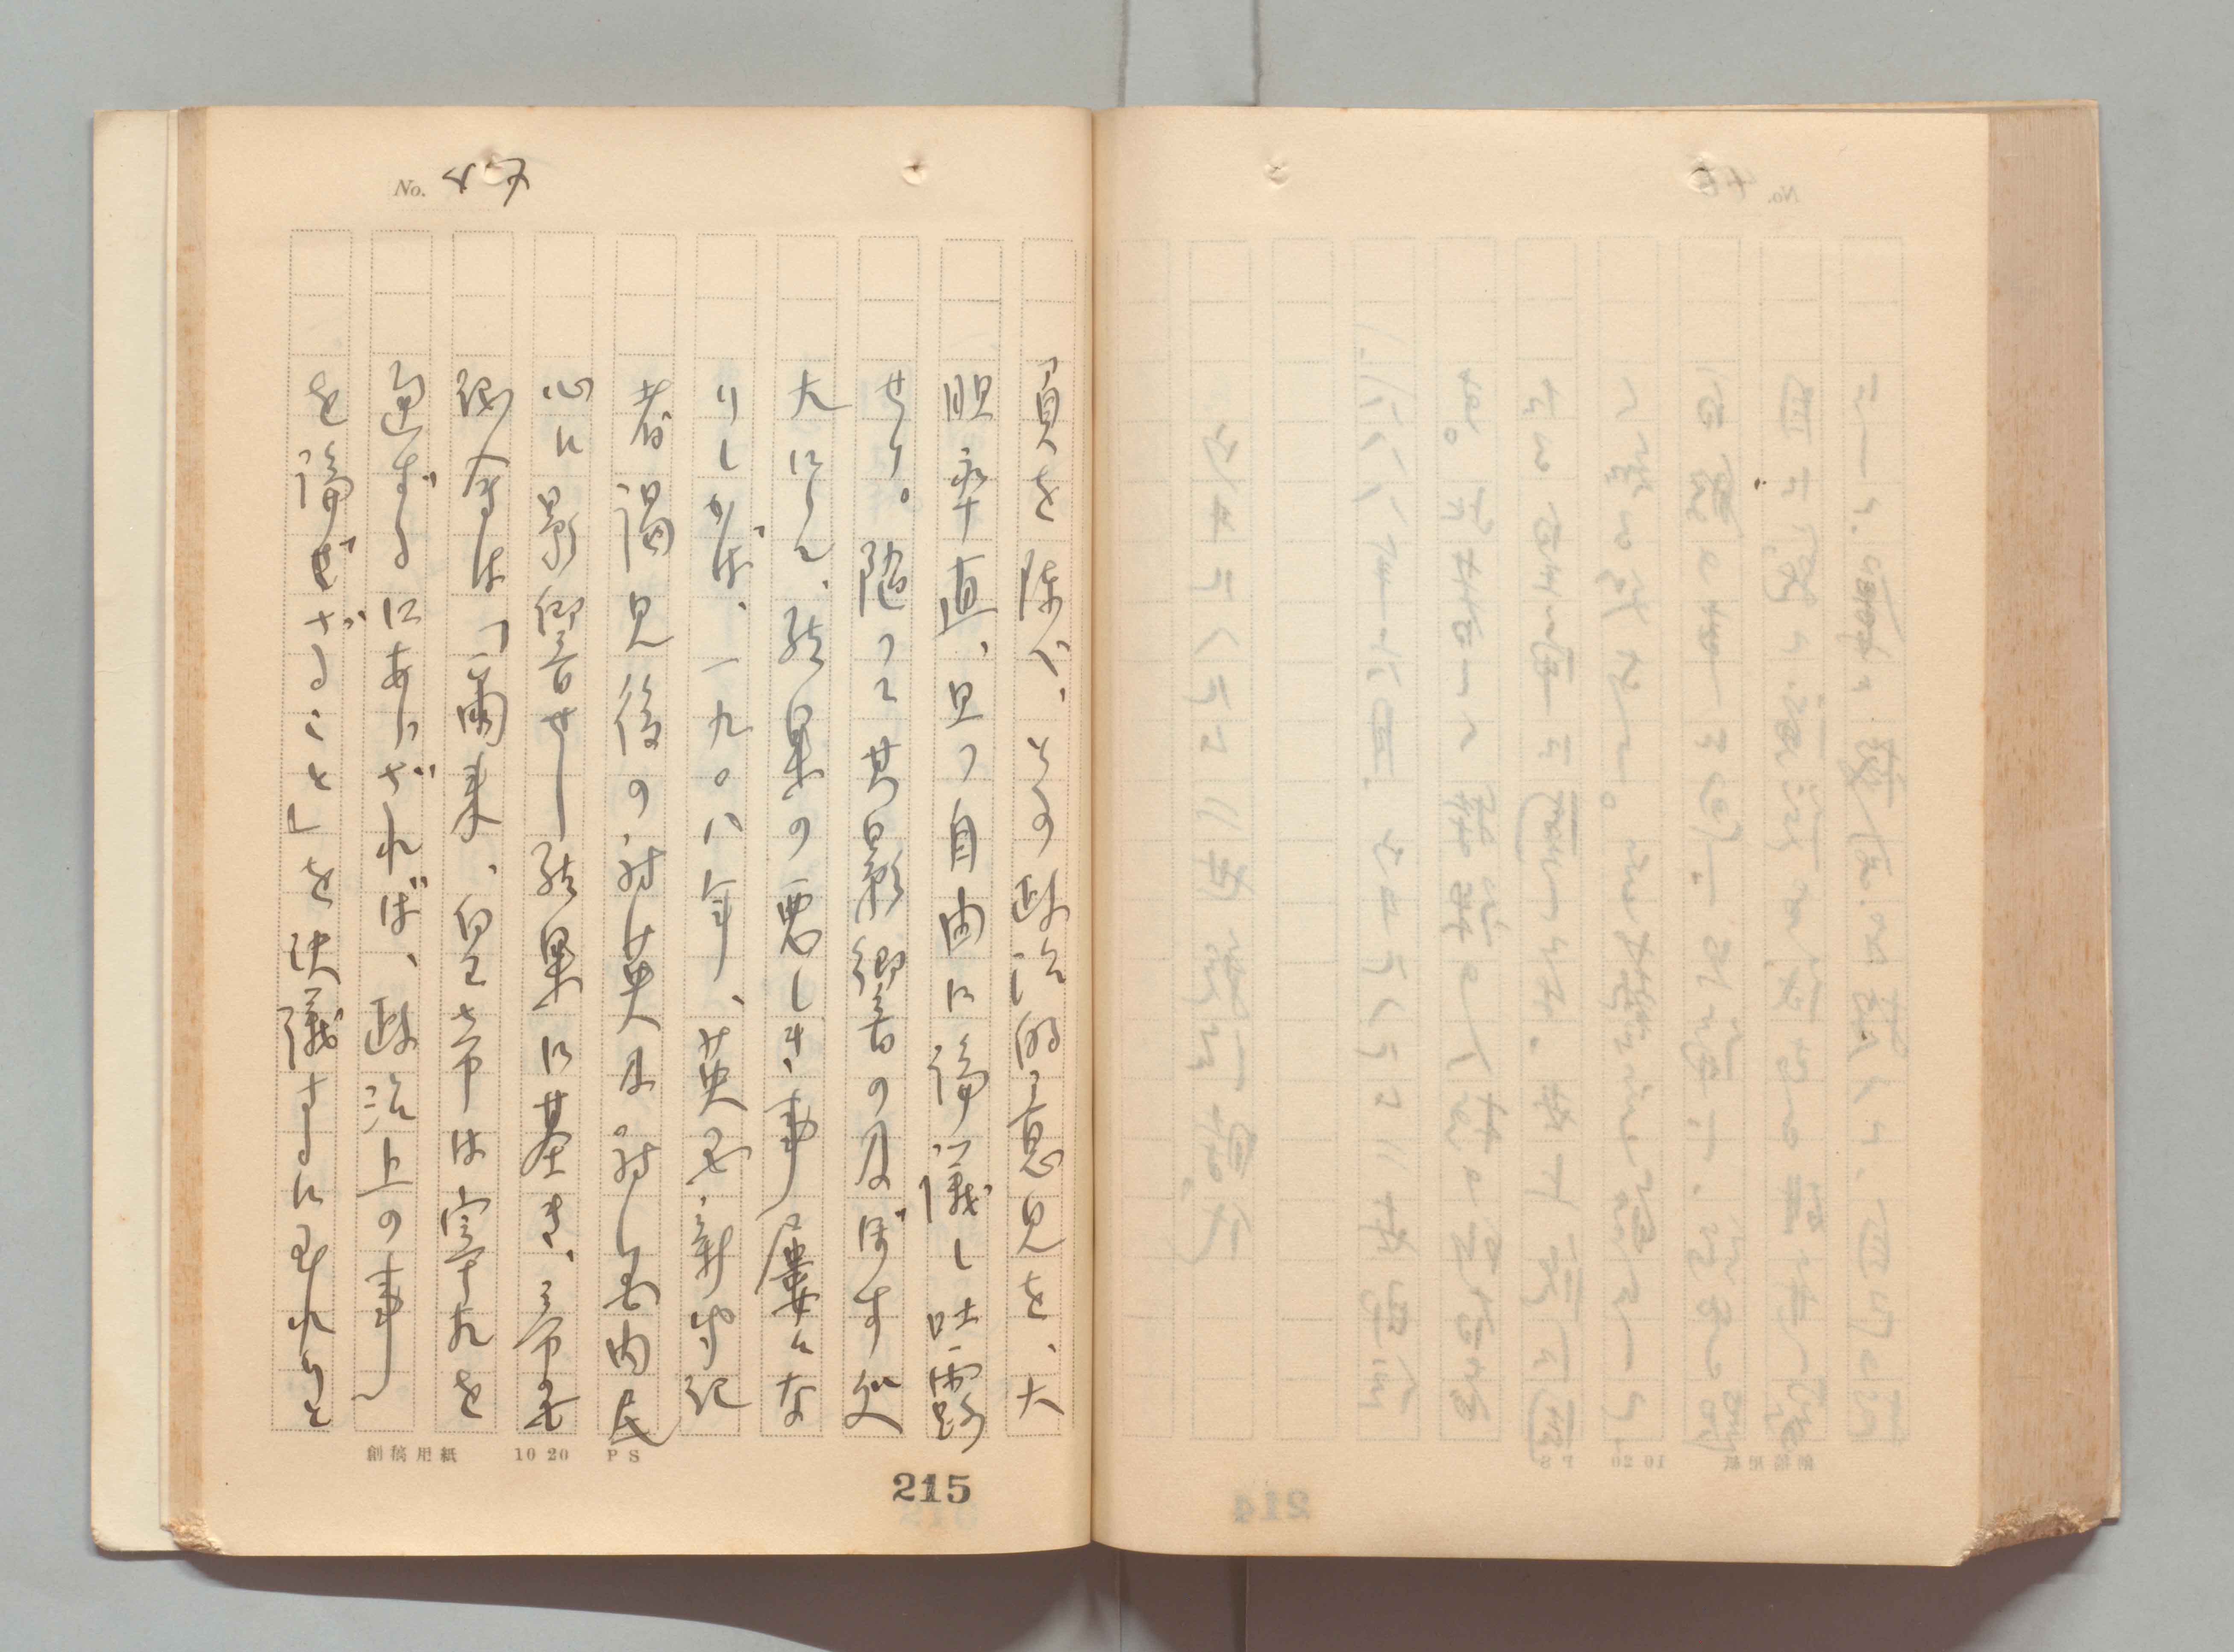 No. 47
員を陳べ、その政治的意見を、大
胆率直、且つ自由に論議し吐露
せり。随つて其影響の及ぼす処
大にして、結果の悪しき事屡々な
りしかば、一九〇八年、英国新聞記
者謁見後の対英人及対し国内民
心に影響せし結果に基き、帝国
議会は「爾来、皇帝は宰相を
通ずるにあらざれば、政治上の事
を論ぜざること」を決議するに至れりと
創稿用紙 10 20 PS
215